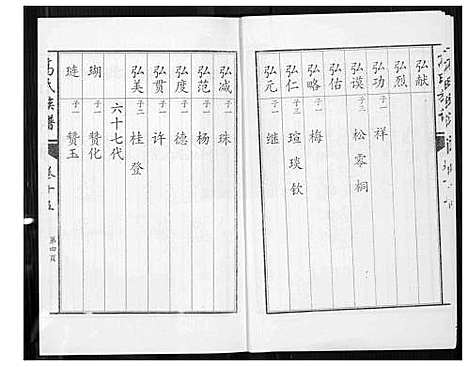 弘献
弘烈
弘功 子一 祥
弘谟 子三 松 零 桐
弘佑
弘略 子一 梅
弘仁 子三 瑄 琰 钦
弘元 子一 继
弘减 子一 珠
弘范 子一 杨
弘度 子一 德
弘贯 子一 许
弘美 子二 桂 登
六十七代
瑚 子一 赞化
琏 子一 赞玉
氏族谱
卷十五
第四页